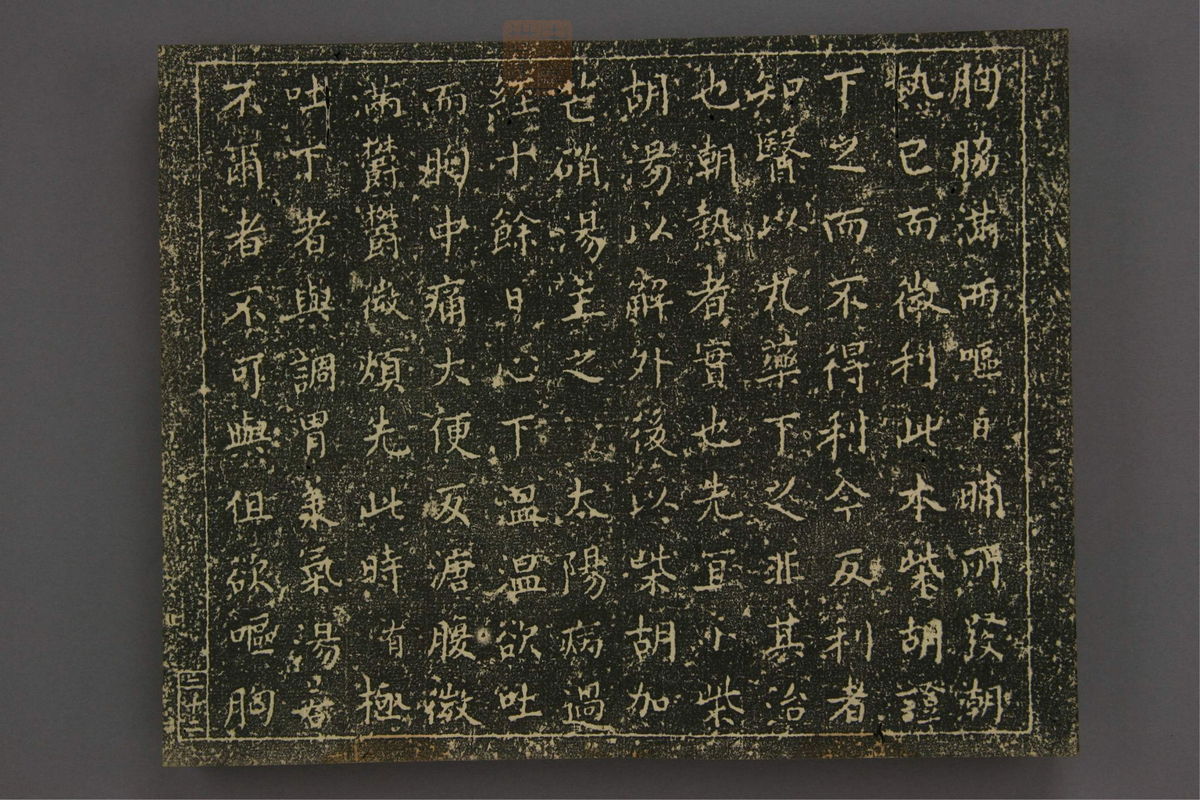 胸脇滿而嘔日晡所發潮
熱已而微利此本柴胡證
下之而不得利今反利者
知醫以丸藥下之非其治
也潮熱者實也先宜小柴
胡湯以解外後以柴胡加
芒硝湯主之　太陽病過
經十餘日心下溫溫欲吐
而胸中痛大便反溏腹微
滿鬱鬱微煩先此時有極
吐下者與調胃承氣湯
不爾者不可與但欲嘔胸
二十二